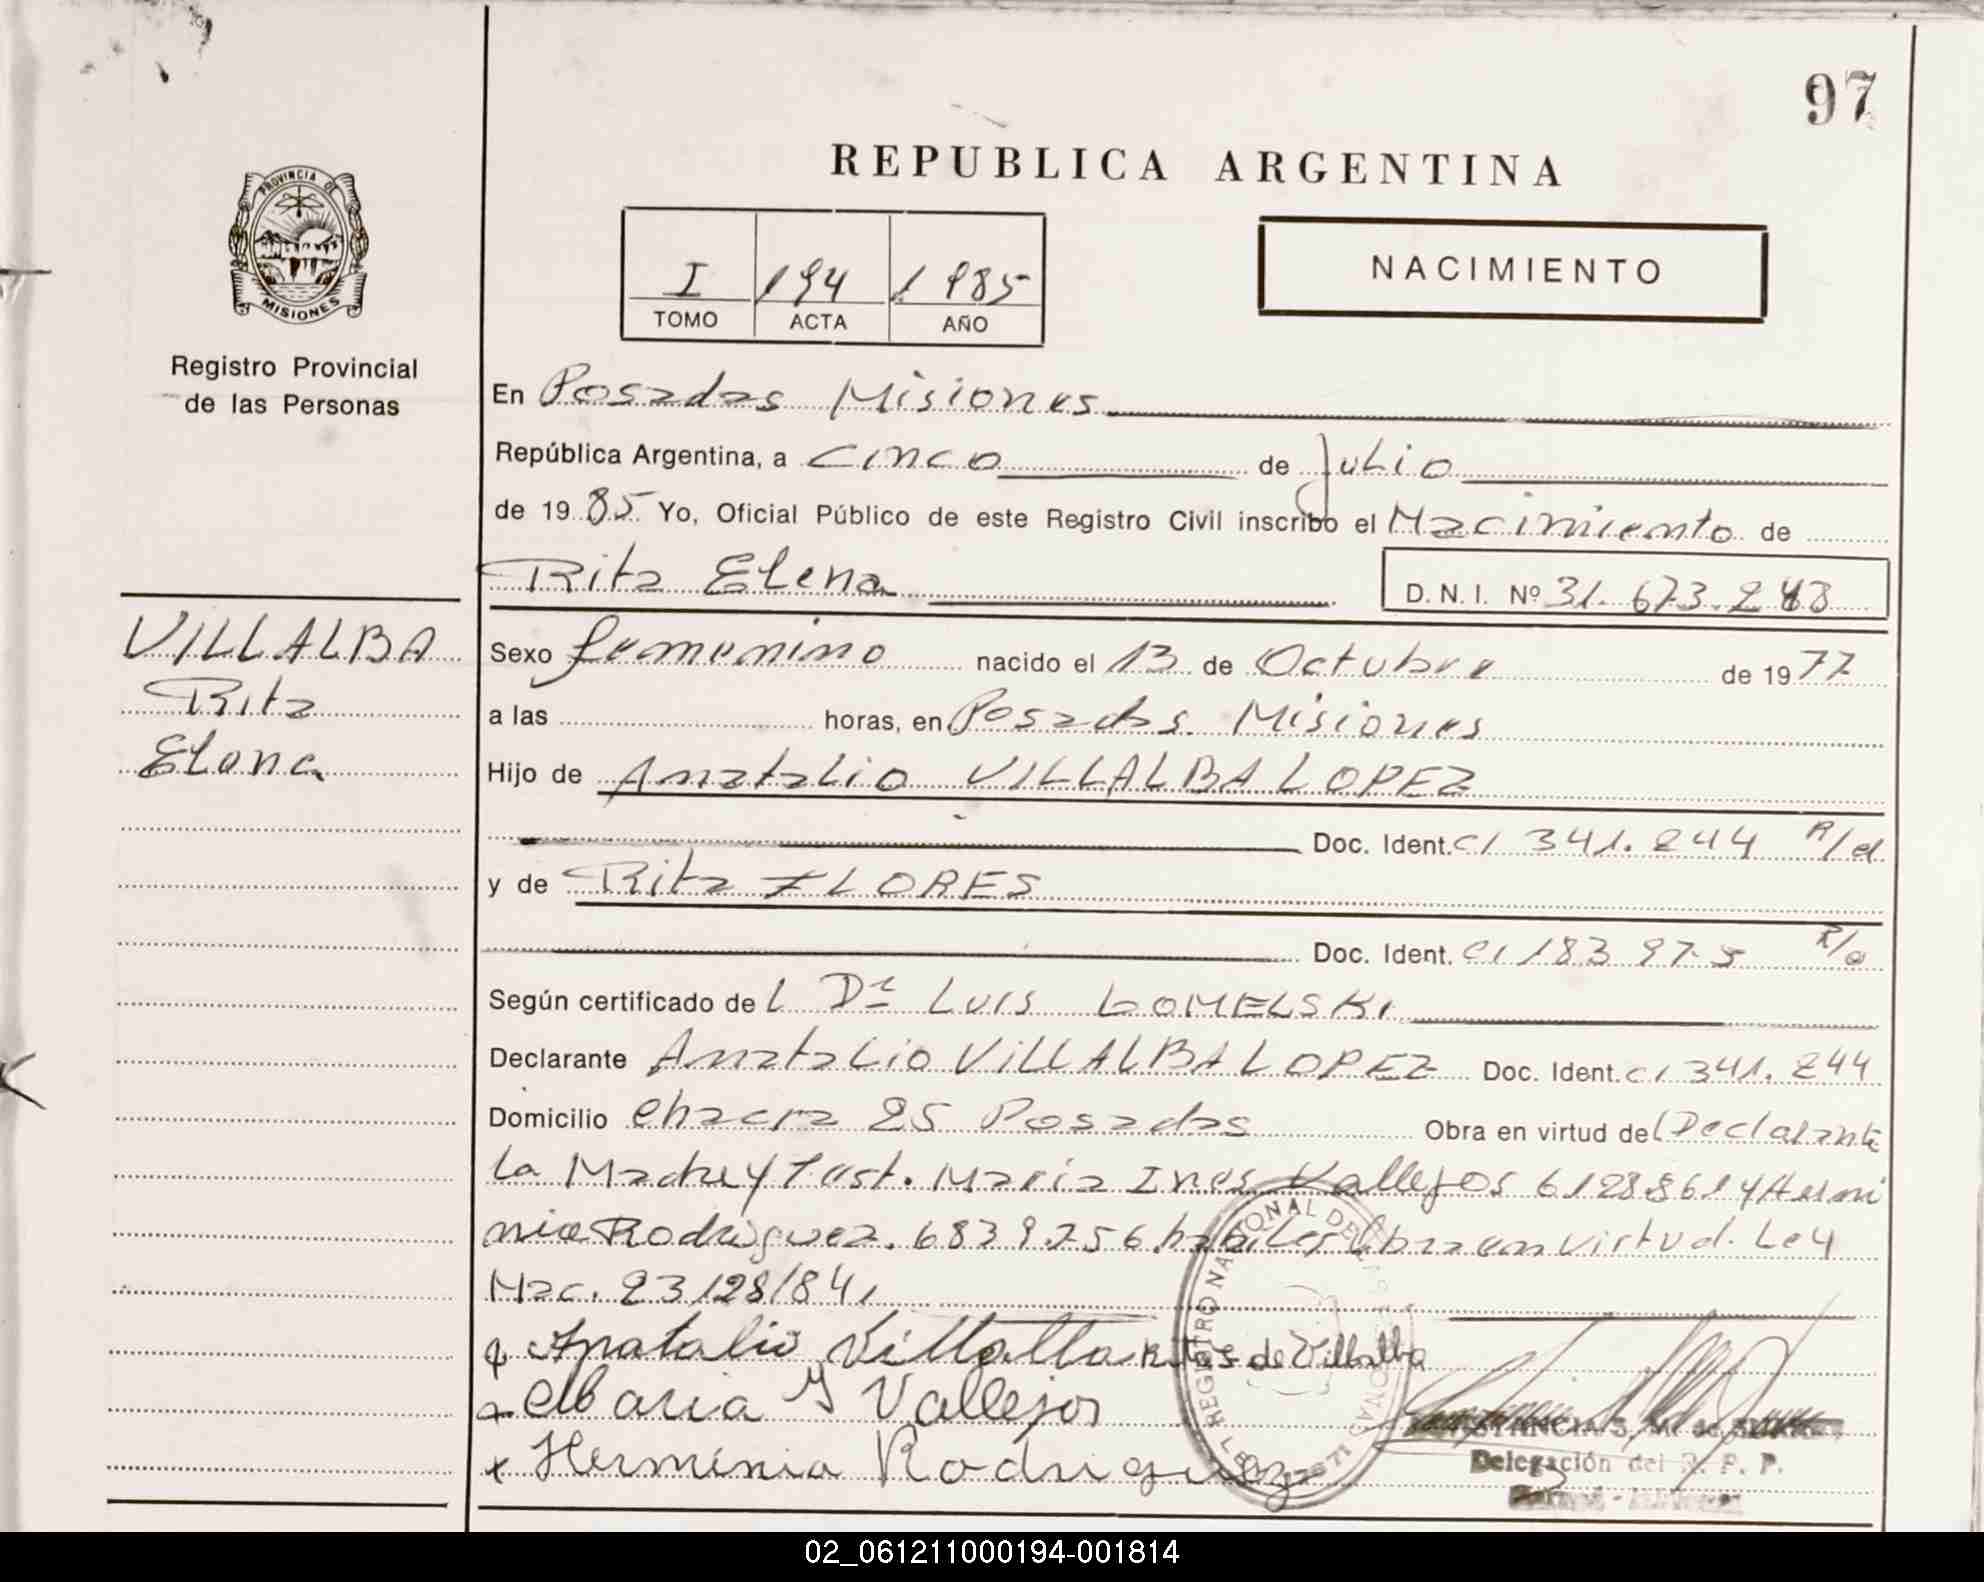 97
REPUBLICA ARGENTINA
PROVINCIA DE
MISIONES
I 194 1985
TOMO ACTA AÑO
NACIMIENTO
Registro Provincial
de las Personas
En Posadas Misiones
República Argentina, a cinco de Julio
de 19 85 Yo, Oficial Público de este Registro Civil inscribo el Nacimiento de
Rita Elena D.N.I. Nº 31.673.248
VILLALBA
Rita
Elena
Sexo femenino nacido el 13 de Octubre de 19 77
a las horas, en Posadas. Misiones
Hijo de Anatalio VILLALBA LOPEZ
Doc. Ident. CI 341.244
y de Rita FLORES
Doc. Ident. CI 183 973
Según certificado de l Dr Luis GOMELSKI
Declarante Anatalio VILLALBA LOPEZ Doc. Ident. CI 341.244
Domicilio Chacra 25 Posadas Obra en virtud de l Declarante
la Madre y Test. Maria Ines Vallejos 6128861 y Hermi
nia Rodriguez. 6839256 habiles Obran en virtud. Ley
Nac. 23128/84
Anatalio Villalba de Villalba
Maria Y Vallejos
x Herminia Rodriguez
REGISTRO NACIONAL DE
Delegación del R. P. P.
02_061211000194-001814